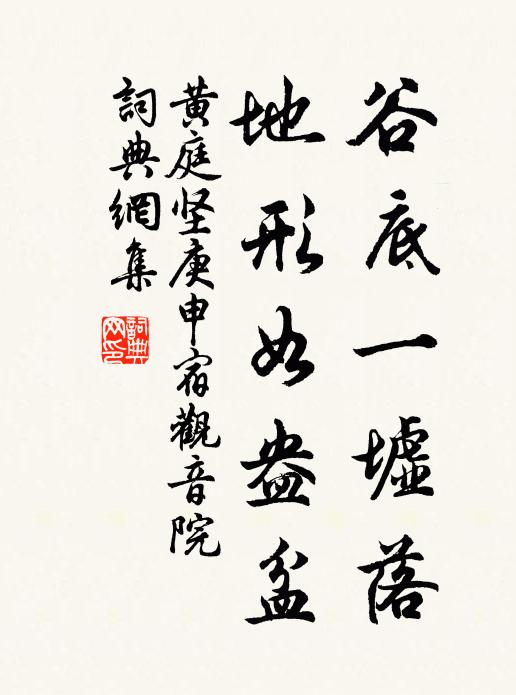 谷底一墟落
地形如盎盆
黄庭坚庚申宿觀音院
詞典網集
詞典网印